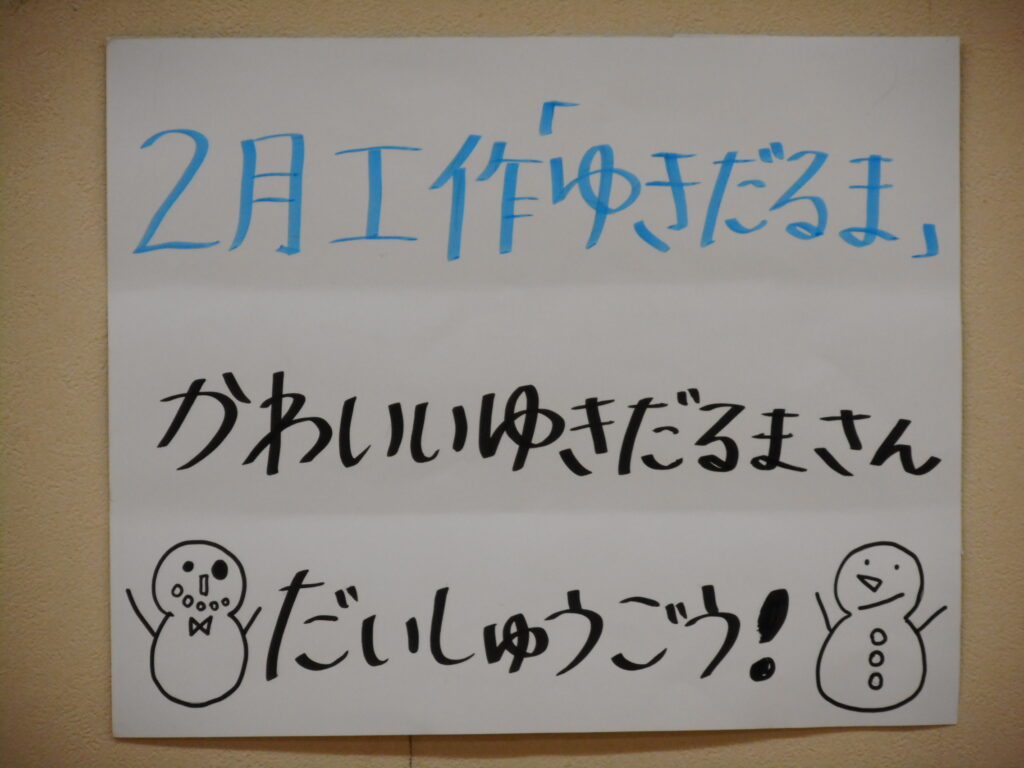 2月工作「ゆきだるま」
かわいいゆきだるまさん
だいしゅうごう!